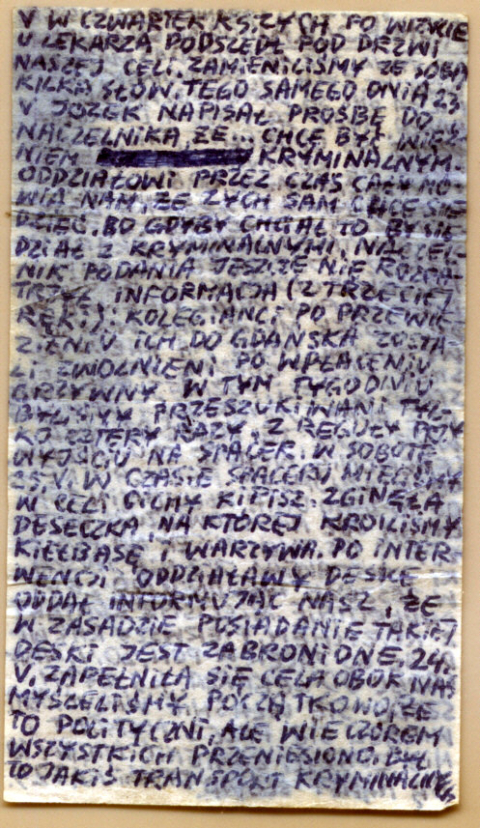 V W CZWARTEK KS. ZYCH PO WIZYCIE
U LEKARZA PODSZEDŁ POD DRZWI
NASZEJ CELI. ZAMIENILIŚMY ZE SOBĄ
KILKA SŁÓW. TEGO SAMEGO DNIA 23
V JÓZEK NAPISAŁ PROŚBĘ DO
NACZELNIKA, ŻE... CHCE BYĆ WIĘŹ
NIEM KRYMINALNYM.
ODDZIAŁOWI PRZEZ CZAS CAŁY MÓ-
WIĄ NAM, ŻE ZYCH SAM CHCE SIE-
DZIEĆ, BO GDYBY CHCIAŁ TO BY SIE
DZIAŁ Z KRYMINALNYMI. NACZEL-
NIK PODANIA JESZCZE NIE ROZPA-
TRZYŁ. INFORMACJA (Z TRZECIEJ
RĘKI): KOLEGIANCI PO PRZEWIE
ZIENIU ICH DO GDAŃSKA ZOSTA
LI ZWOLNIENI PO WPŁACENIU
GRZYWNY. W TYM TYGODNIU
BYLIŚMY PRZESZUKIWANI TYL-
KO CZTERY RAZY, Z REGUŁY PRZY
WYJŚCIU NA SPACER. W SOBOTĘ
25.V. W CZASIE SPACERU MIELIŚMY
W CELI CICHY KIPISZ. ZGINĘŁA
DESECZKA, NA KTÓREJ KROILIŚMY
KIEŁBASĘ I WARZYWA. PO INTER
WENCJI ODDZIAŁOWY DESKĘ
ODDAŁ INFORMUJĄC NAS, ŻE
W ZASADZIE POSIADANIE TAKIEJ
DESKI JEST ZABRONIONE. 24.
V. ZAPEŁNIŁA SIĘ CELA OBOK NAS
MYŚLELIŚMY POCZĄTKOWO, ŻE
TO POLITYCZNI, ALE WIECZOREM
WSZYSTKICH PRZENIESIONO. BYŁ
TO JAKIŚ TRANSPORT KRYMINALNY